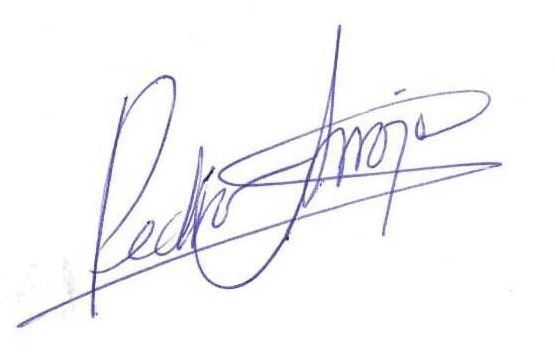 Pedro Arrojo